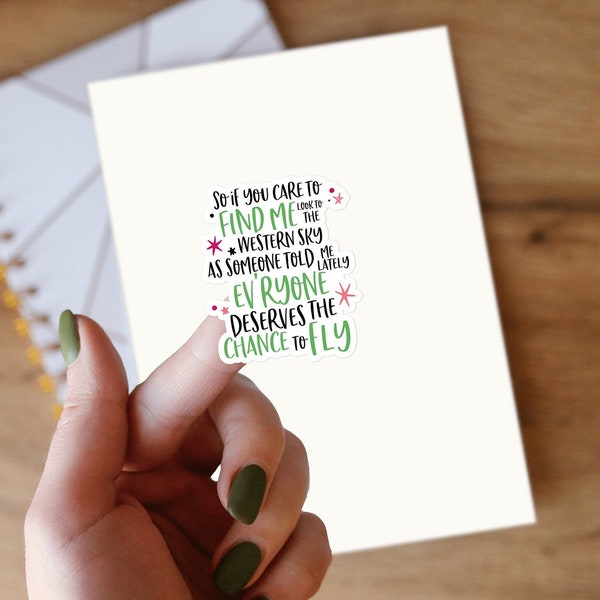 SO IF YOU CARE TO
FIND ME LOOK TO THE
WESTERN SKY
AS SOMEONE TOLD ME LATELY
EV'RYONE
DESERVES THE
CHANCE TO FLY